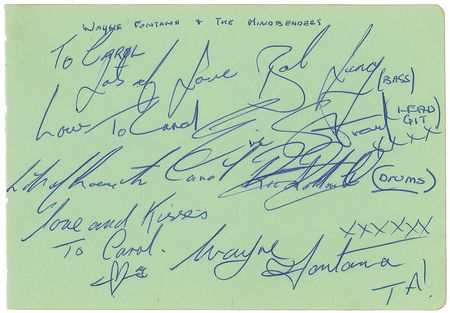 WAYNE FONTANA & THE MINDBENDERS
To CAROL
Lots of Love Bob Lang (BASS)
Love To Carol Eric Stewart (LEAD GIT)
xxxx
Carol Ric Rothwell (DRUMS)
Love and Kisses
To Carol.
xxxxxx
Wayne Fontana
TA!